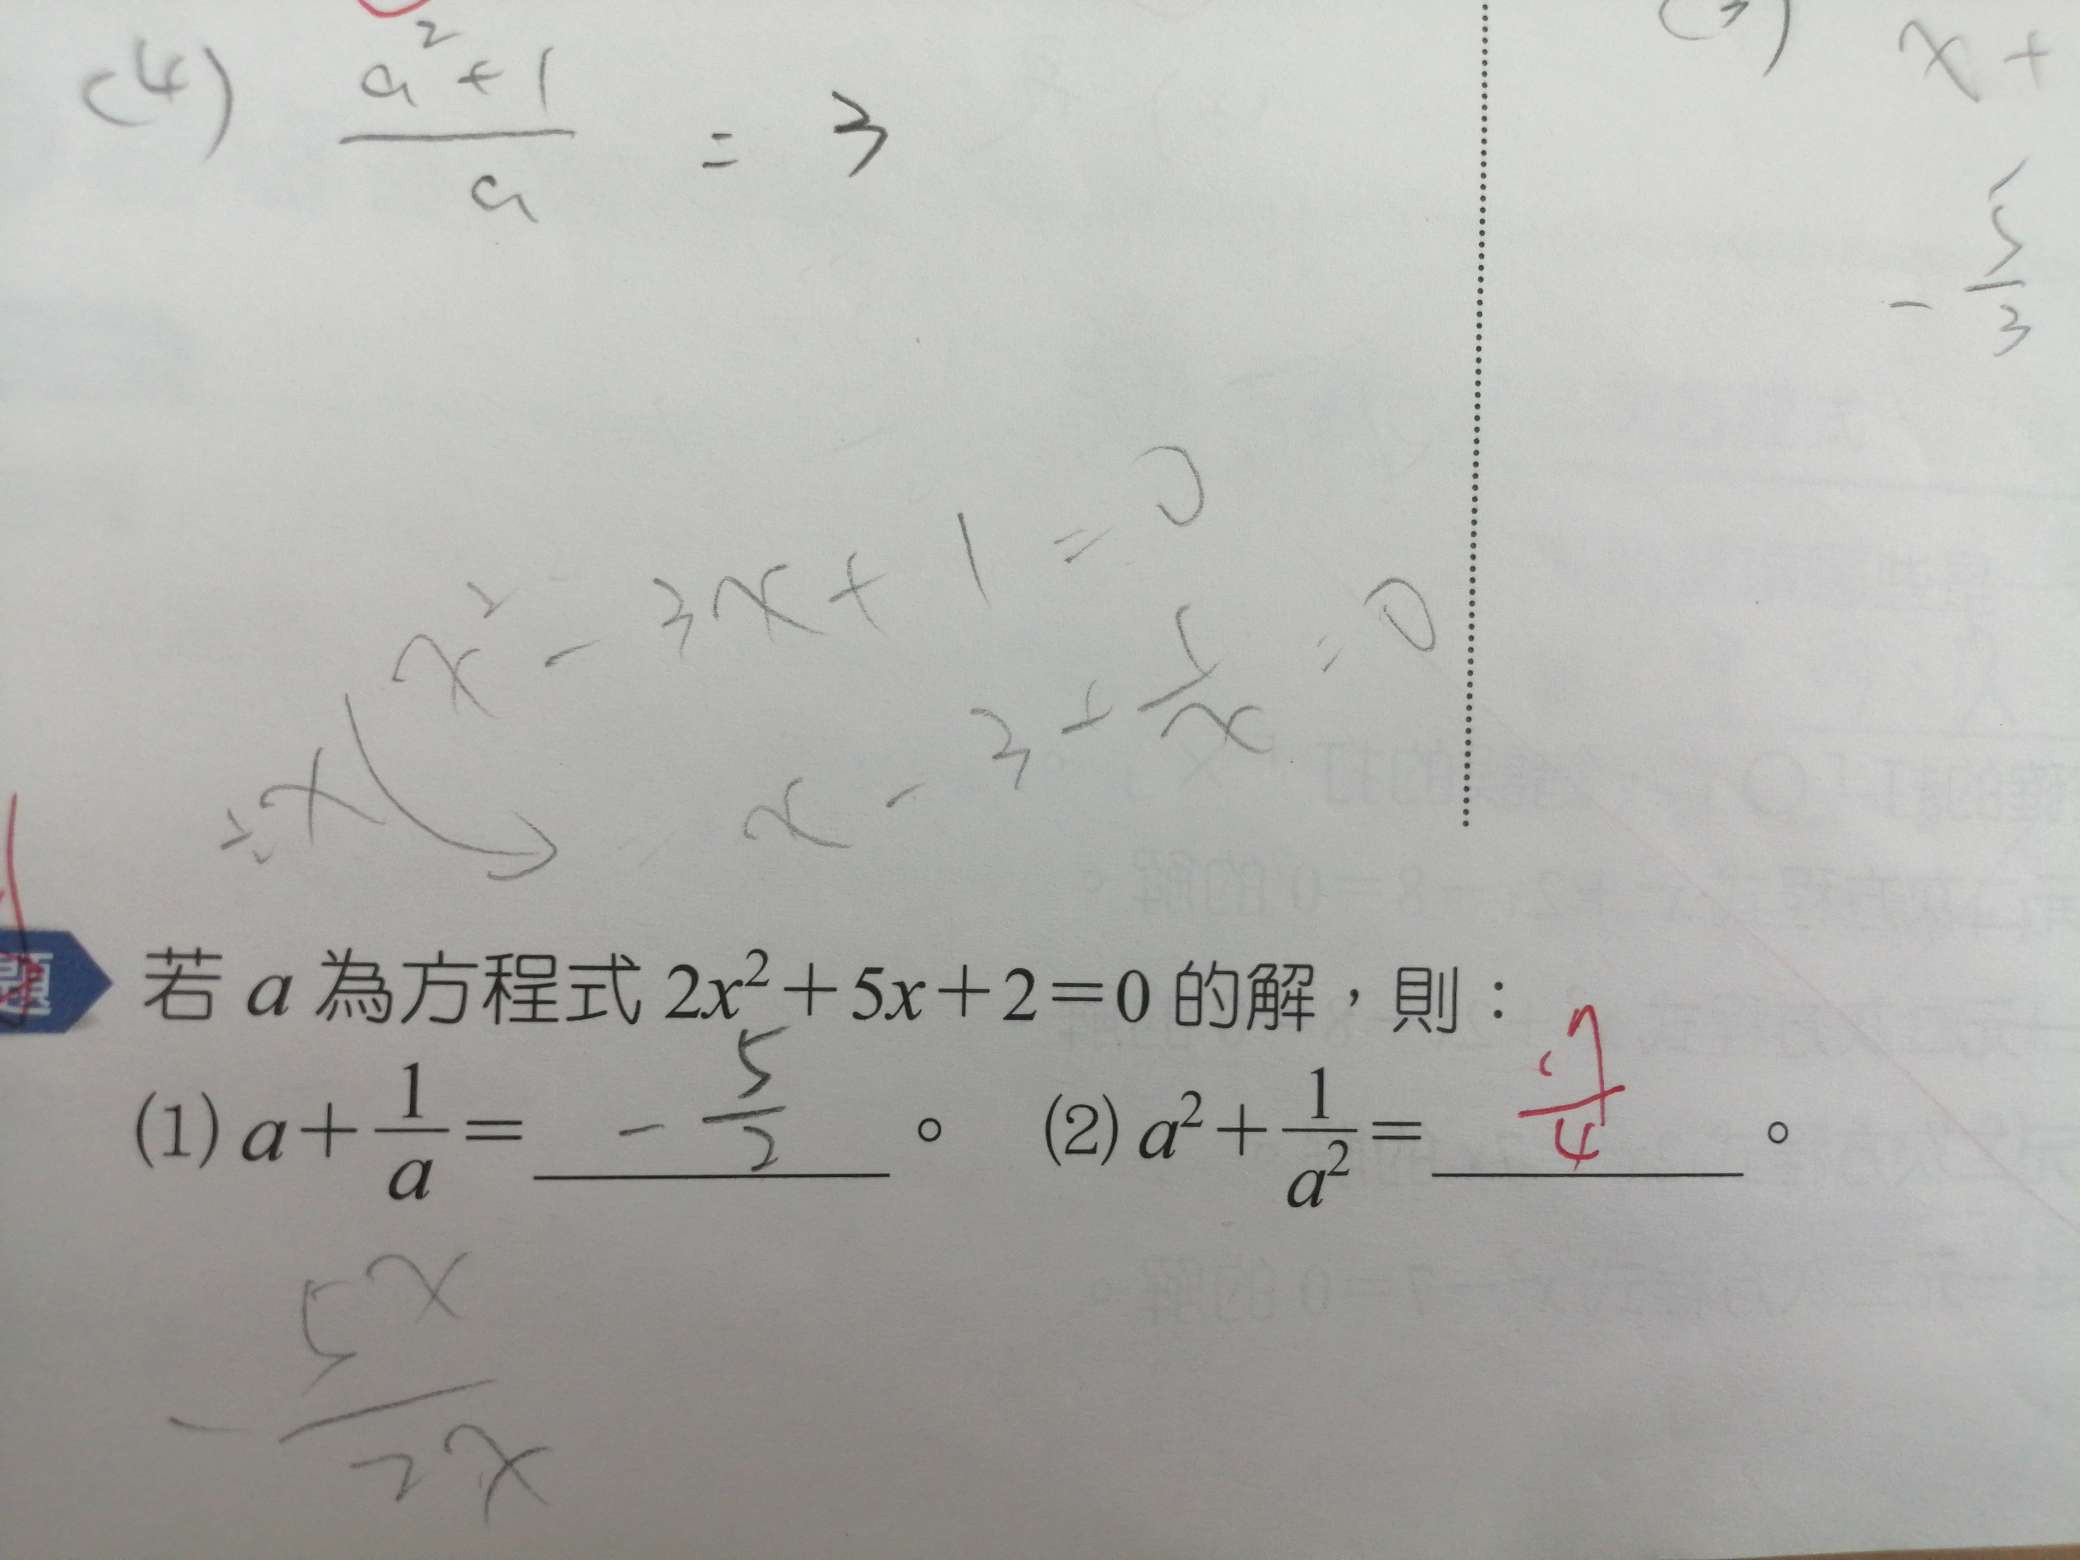 (4) a²+1 / a = 3
x +
- 5/3
x² - 3x + 1 = 0
÷x
x - 3 + 1/x = 0
題 若 a 為方程式 2x²+5x+2=0 的解，則：
(1) a+1/a= -5/2 。 (2) a²+1/a²= 17/4 。
- 5x/2x